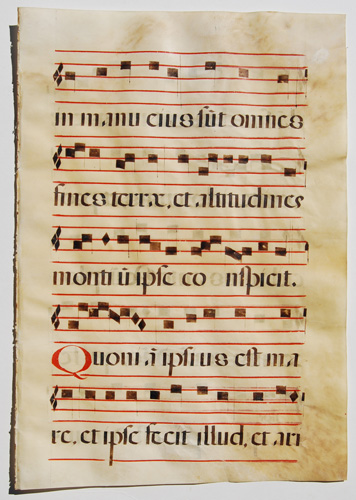 in manu eius sūt omnes
fines terræ, et altitudines
montiū ipse conspicit.
Quoniā ipsius est ma
re, et ipse fecit illud, et ari